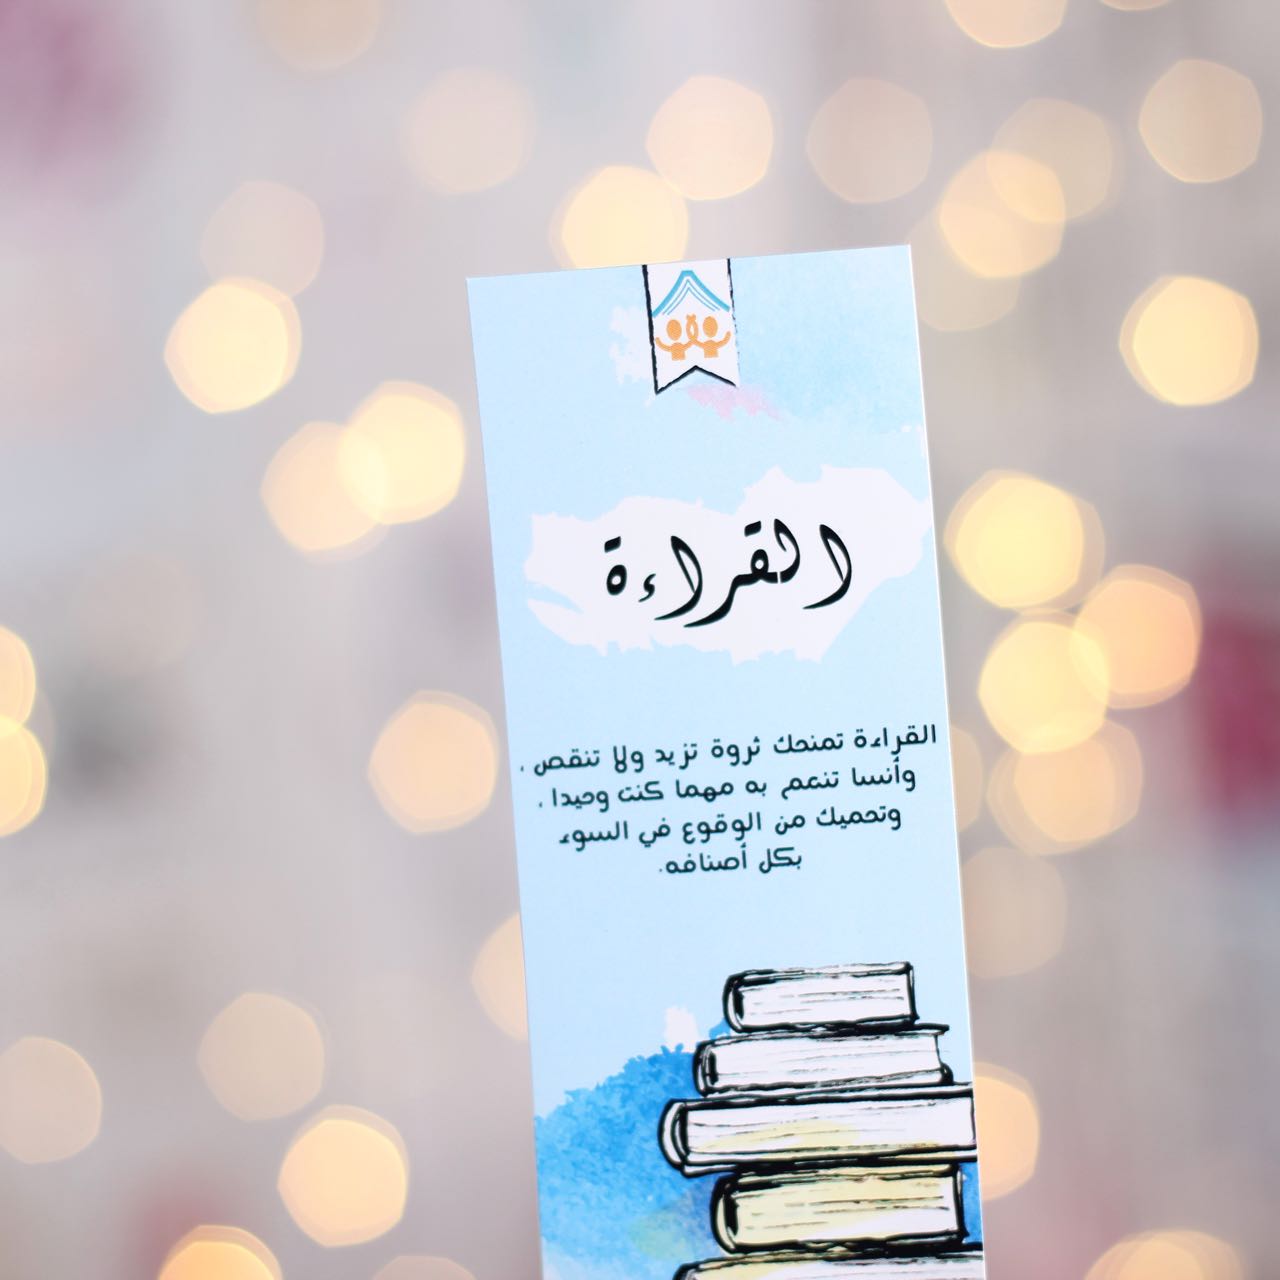 القراءة
القراءة تمنحك ثروة تزيد ولا تنقص ،
وأنسا تنعم به مهما كنت وحيدا ،
وتحميك من الوقوع في السوء
بكل أصنافه.